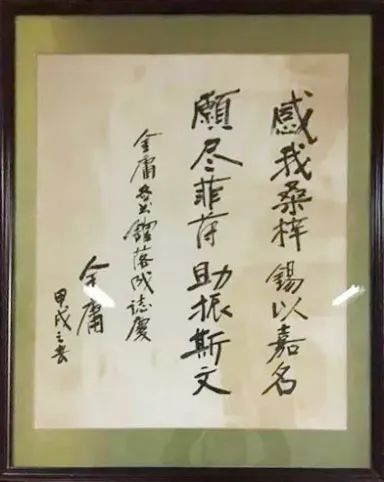 感我桑梓 錫以嘉名
願尽菲薄 助振斯文
金庸図书館落成誌慶
金庸
甲戌之